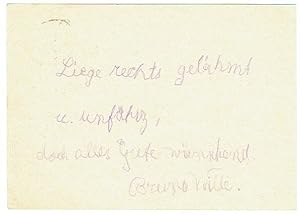 Liege rechts gelähmt
u. unfähig,
doch alles Gute wünschend.
Bruno Wille.